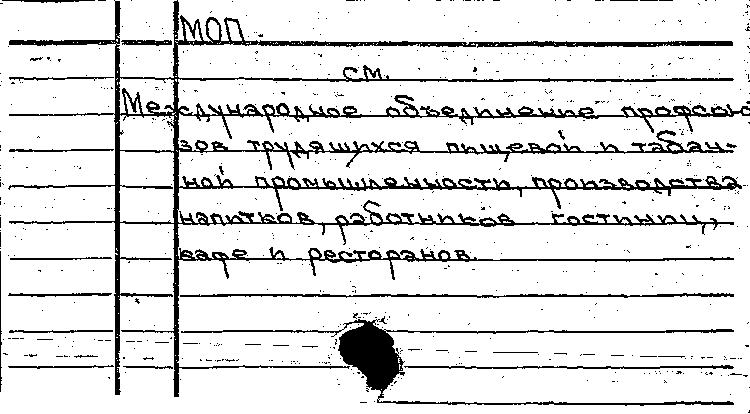 МОП
см.
Международное объединение профсою-
зов трудящихся пищевой и табач-
ной промышленности, производства
напитков, работников гостиниц,
кафе и ресторанов.